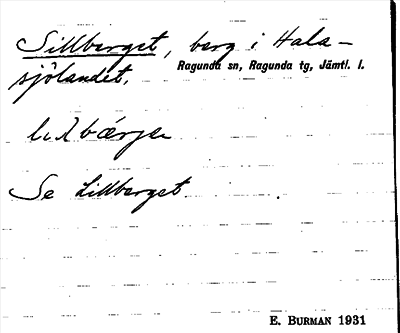 Sillberget, berg i Hala-
Ragunda sn, Ragunda tg, Jämtl. l.
sjölandet.
Se Lillberget.
E. BURMAN 1931